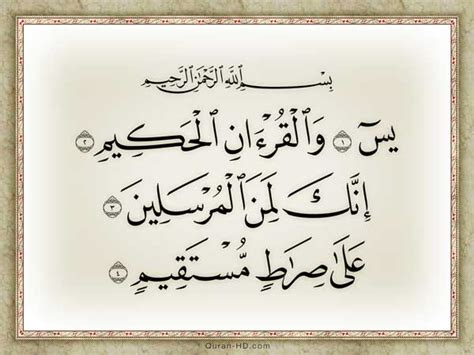 بِسْمِ ٱللَّهِ ٱلرَّحْمَٰنِ ٱلرَّحِيمِ
يسٓ ۝١ وَٱلْقُرْءَانِ ٱلْحَكِيمِ ۝٢
إِنَّكَ لَمِنَ ٱلْمُرْسَلِينَ ۝٣
عَلَىٰ صِرَٰطٍ مُّسْتَقِيمٍ ۝٤
Quran-HD.com